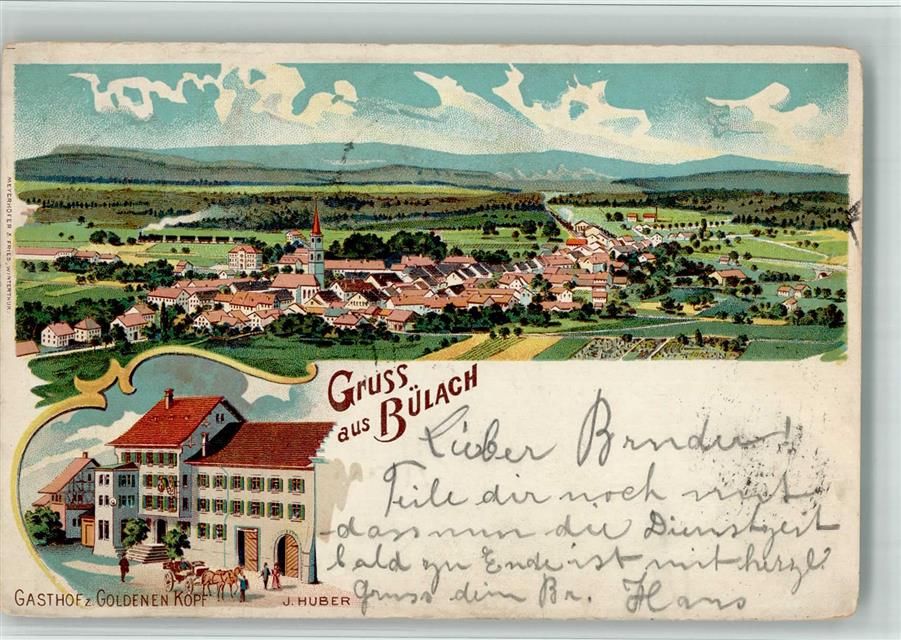 MEYERHOFER & FRIES, WINTERTHUR.
Gruss
aus BÜLACH
Lieber Bruder!
Teile dir noch mit
dass nun die Dienstzeit
bald zu Ende ist mit herzl.
Gruss dein Br. Hans
GASTHOF z. GOLDENEN KOPF
J. HUBER